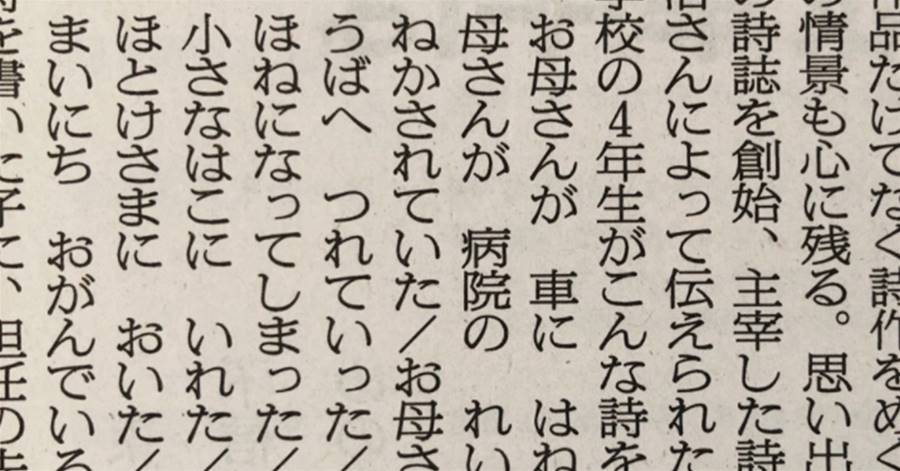 作品だけでなく詩作をめぐ
の情景も心に残る。思い出
の詩誌を創始、主宰した詩
さんによって伝えられた
学校の4年生がこんな詩を
お母さんが　車に　はね
母さんが　病院の　れい
ねかされていた／お母さ
うばへ　つれていった／
ほねになってしまった／
小さなはこに　いれた／
ほとけさまに　おいた／
まいにち　おがんでいる
を書いた子に、担任の先